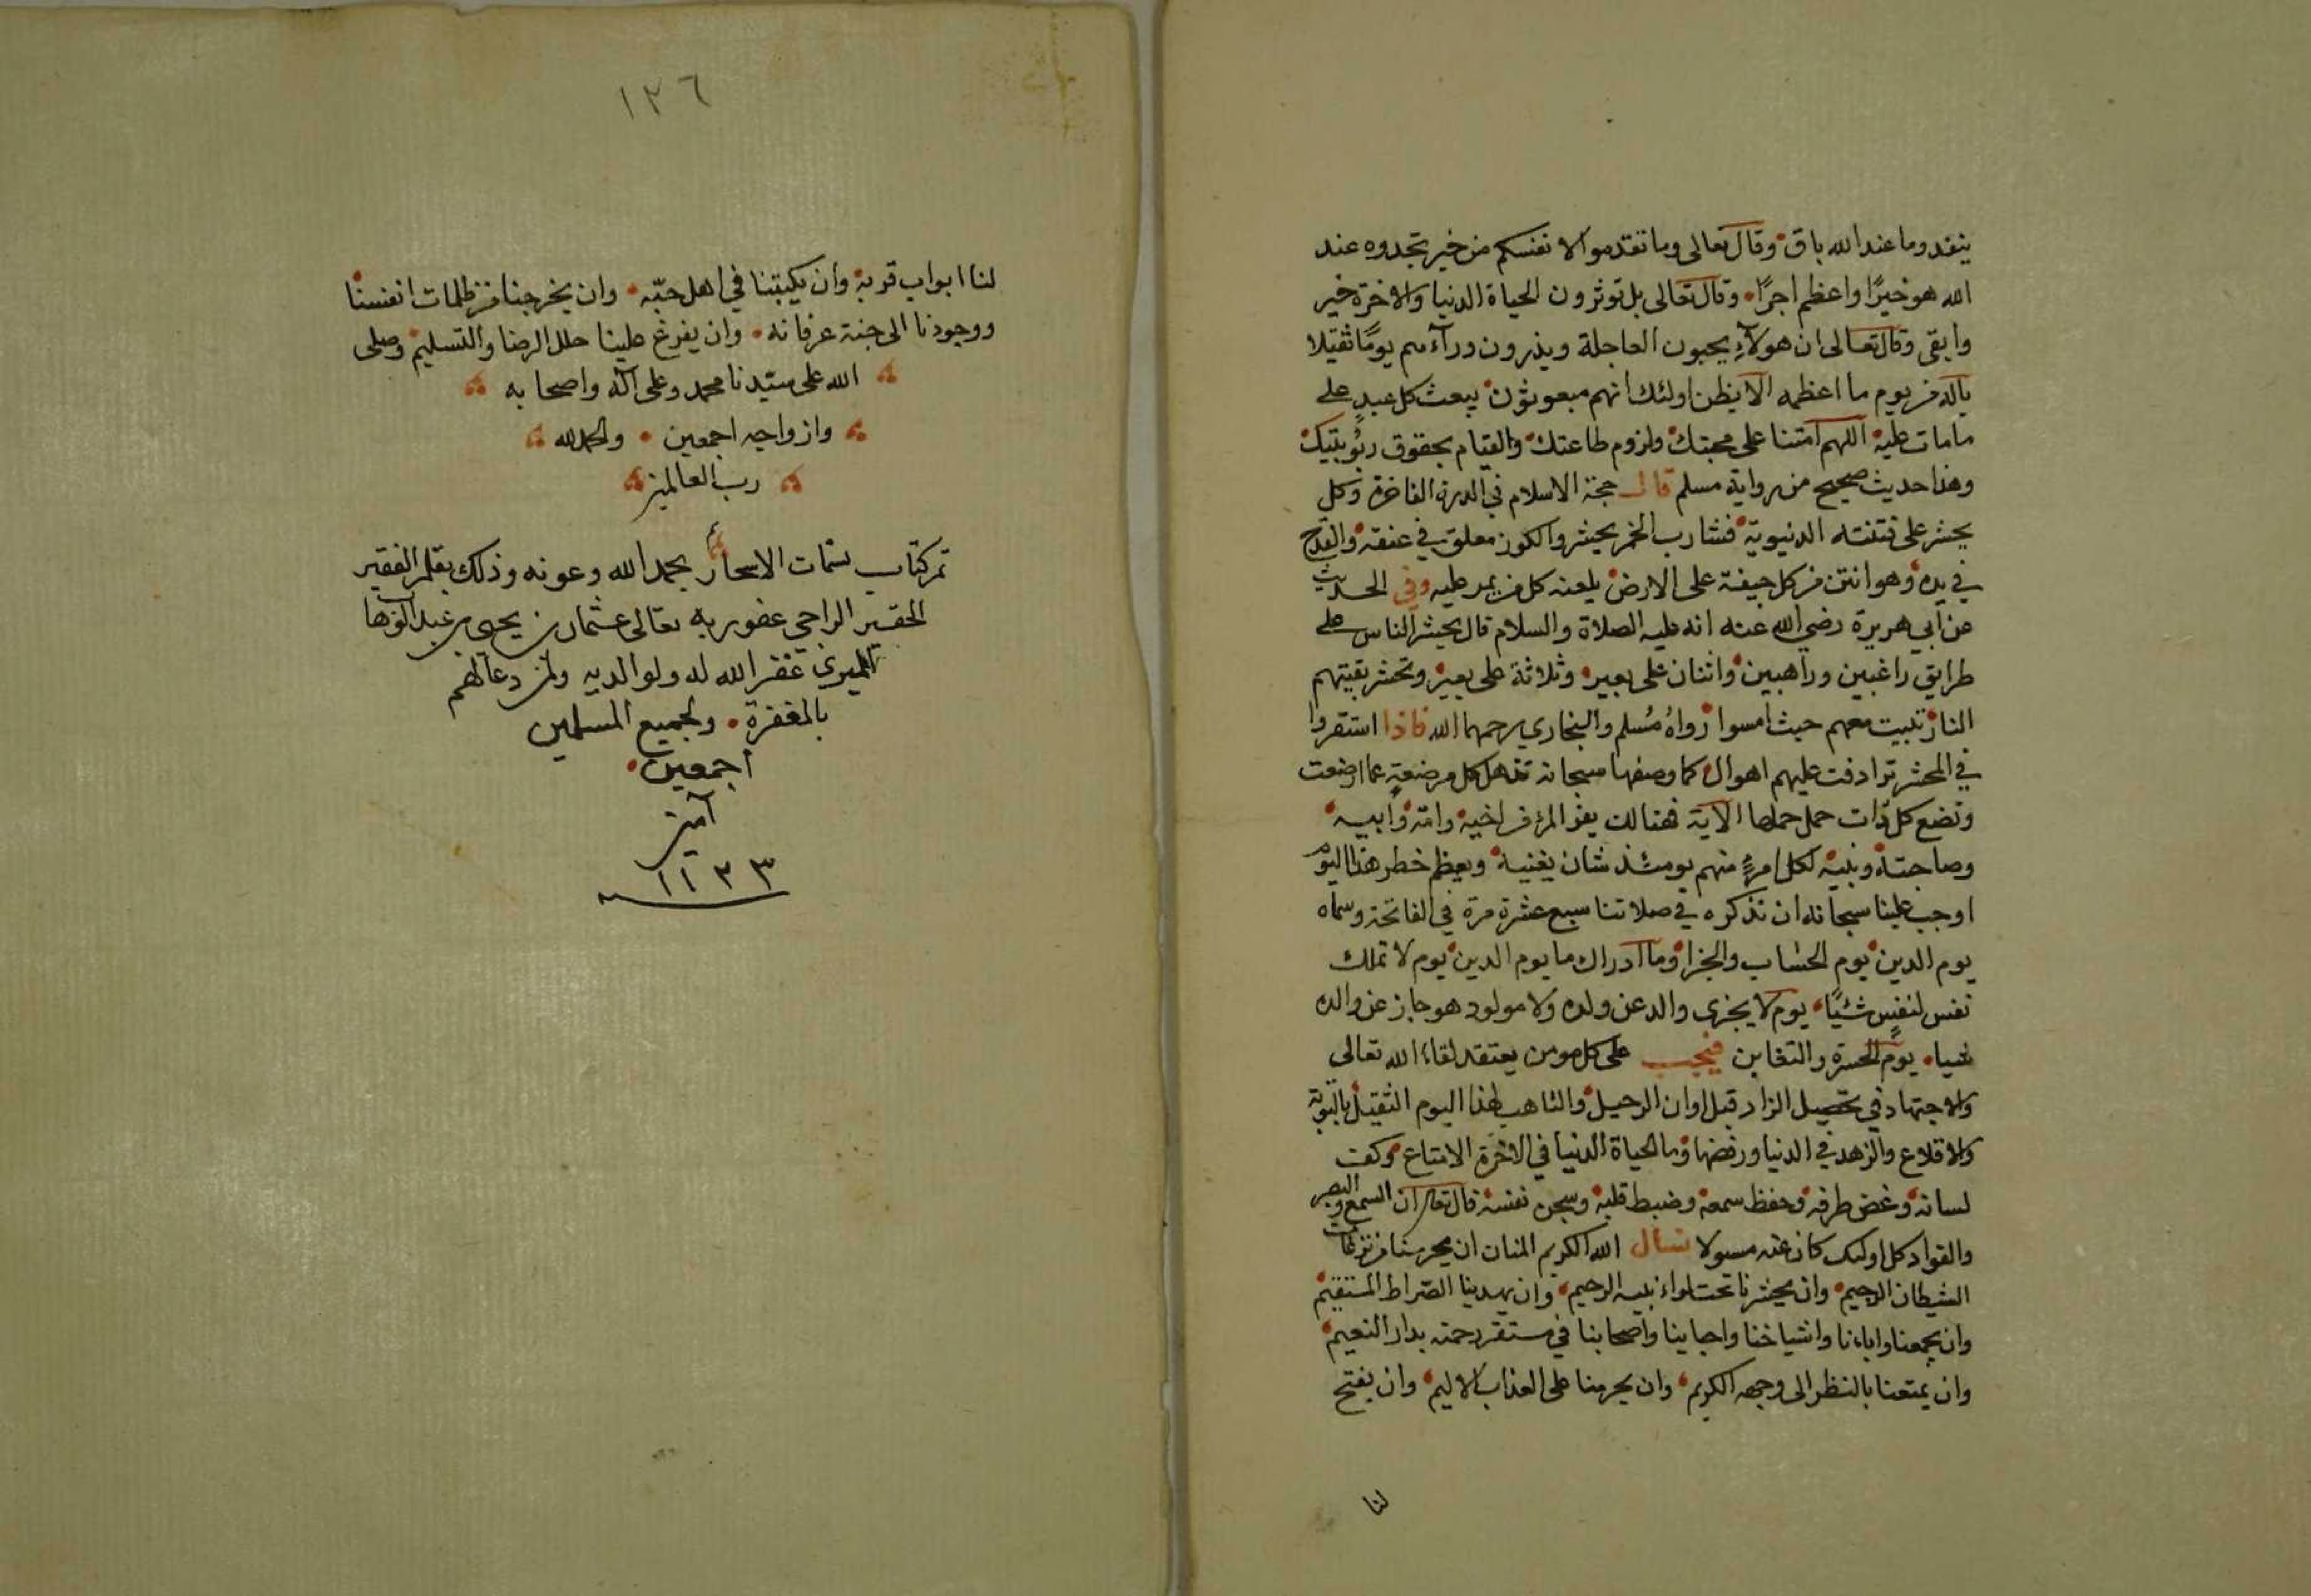 ينفد وما عند الله باق وقال تعالى وما تقدموا لانفسكم من خير تجدوه عند
الله هو خيرًا واعظم اجرًا وقال تعالى بل توثرون الحياة الدنيا والاخرة خير
وابقى وقال تعالى ان هولآءِ يحبون العاجلة ويذرون ورآءهم يومًا ثقيلا
ياله من يوم ما اعظمه الا يظن اولئك انهم مبعوثون يبعث كل عبدٍ على
ما مات عليه اللهم امتنا على محبتك ولزوم طاعتك والقيام بحقوق ربوبيتك
وهذا حديث صحيح من رواية مسلم قال حجة الاسلام في الدرة الفاخرة وكل
يحشر على فتنته الدنيوية فشارب الخمر يحشر والكوز معلق في عنقه والقدح
في يده وهو انتن من كل جيفة على الارض يلعنه كل من يمر عليه وفي الحديث
عن ابي هريرة رضي الله عنه انه عليه الصلاة والسلام قال يحشر الناس على
طرايق راغبين وراهبين واثنان على بعير وثلاثة على بعير وتحشر بقيتهم
النار تبيت معهم حيث امسوا رواهُ مُسلم والبخاري رحمهما الله فاذا استقروا
في المحشر ترادفت عليهم اهوال كما وصفها سبحانه تذهل كل مرضعةٍ عما ارضعت
وتضع كل ذات حمل حملها الاية فهنالك يفر المرء من اخيه وامّه وابيه
وصاحبته وبنيه لكل امرءٍ منهم يومئذ شان يغنيه ويعظم خطر هذا اليوم
اوجب علينا سبحانه ان نذكره في صلاتنا سبع عشرة مرة في الفاتحة وسماه
يوم الدين يوم الحساب والجزا وما ادراك ما يوم الدين يوم لا تملك
نفس لنفسٍ شئيًا يوم لا يجزى والد عن ولده ولا مولود هو جاز عن والده
شيا يوم الحسرة والتغابن فيجب على كل مومن يعتقد لقاء الله تعالى
والاجتهاد في تحصيل الزاد قبل اوان الرحيل والتاهب لهذا اليوم الثقيل بالتوبة
والاقلاع والزهد في الدنيا ورفضها وما الحياة الدنيا في الاخرة الا متاع وكف
لسانه وغض طرفه وحفظ سمعه وضبط قلبه وسجن نفسه قال تعالى ان السمع والبصر
والفواد كل اولئك كان عنه مسولا نسال الله الكريم المنان ان يحرسنا من نزغات
الشيطان الرجيم وان يحشرنا تحت لواء نبيه الرحيم وان يهدينا الصّراط المستقيم
وان يجمعنا واباءنا واشياخنا واحبابنا واصحابنا في مستقر رحمته بدار النعيم
وان يمتعنا بالنظر الى وجهه الكريم وان يحرمنا على العذاب الاليم وان يفتح
لنا
١٢٦
لنا ابواب قربه وان يكبتنا في اهل حبّه وان يخرجنا من ظلمات انفسنا
ووجودنا الى جنة عرفانه وان يفرغ علينا حلل الرضا والتسليم وصلى
الله على سيّدنا محمد وعلى آله واصحابه
وازواجه اجمعين والحمد لله
رب العالمين
تم كتاب نسمات الاسحار بحمد الله وعونه وذلك بقلم الفقير
الحقير الراجي عفو ربه تعالى عثمان بن يحيى بن عبد الوهاب
غفر الله له ولوالديه ولمن دعا لهم
بالمغفرة ولجميع المسلمين
اجمعين
آمين
١١٣٣